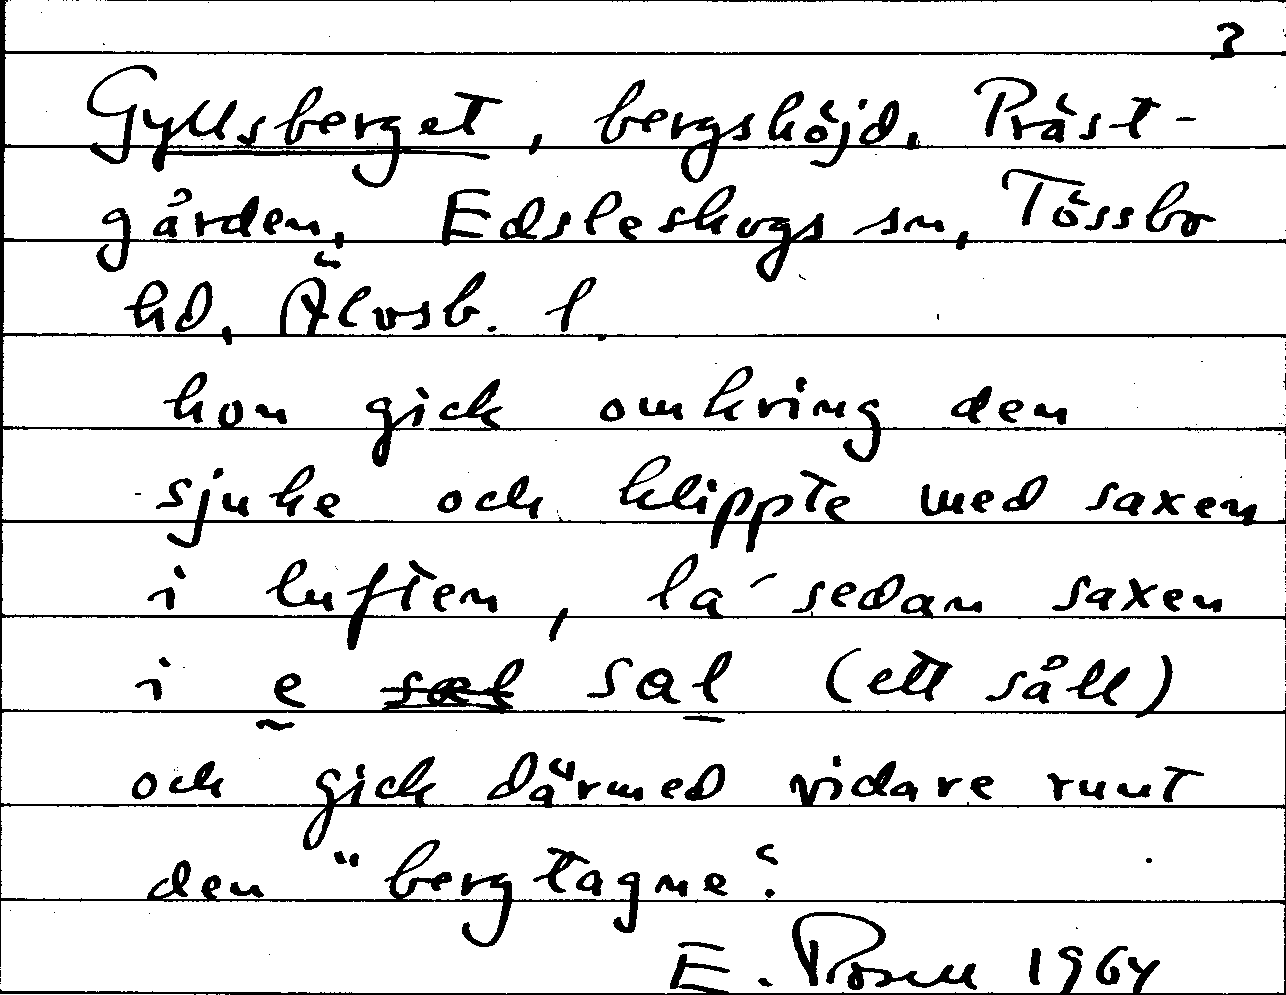 3
Gyllsberget, bergshöjd, Präst-
gården, Edsleskogs sn, Tössbo
hd, Älvsb. l.
hon gick omkring den
sjuke och klippte med saxen
i luften, la´ sedan saxen
i e sæl sal (ett såll)
och gick därmed vidare runt
den "bergtagne".
E. Rosell 1964